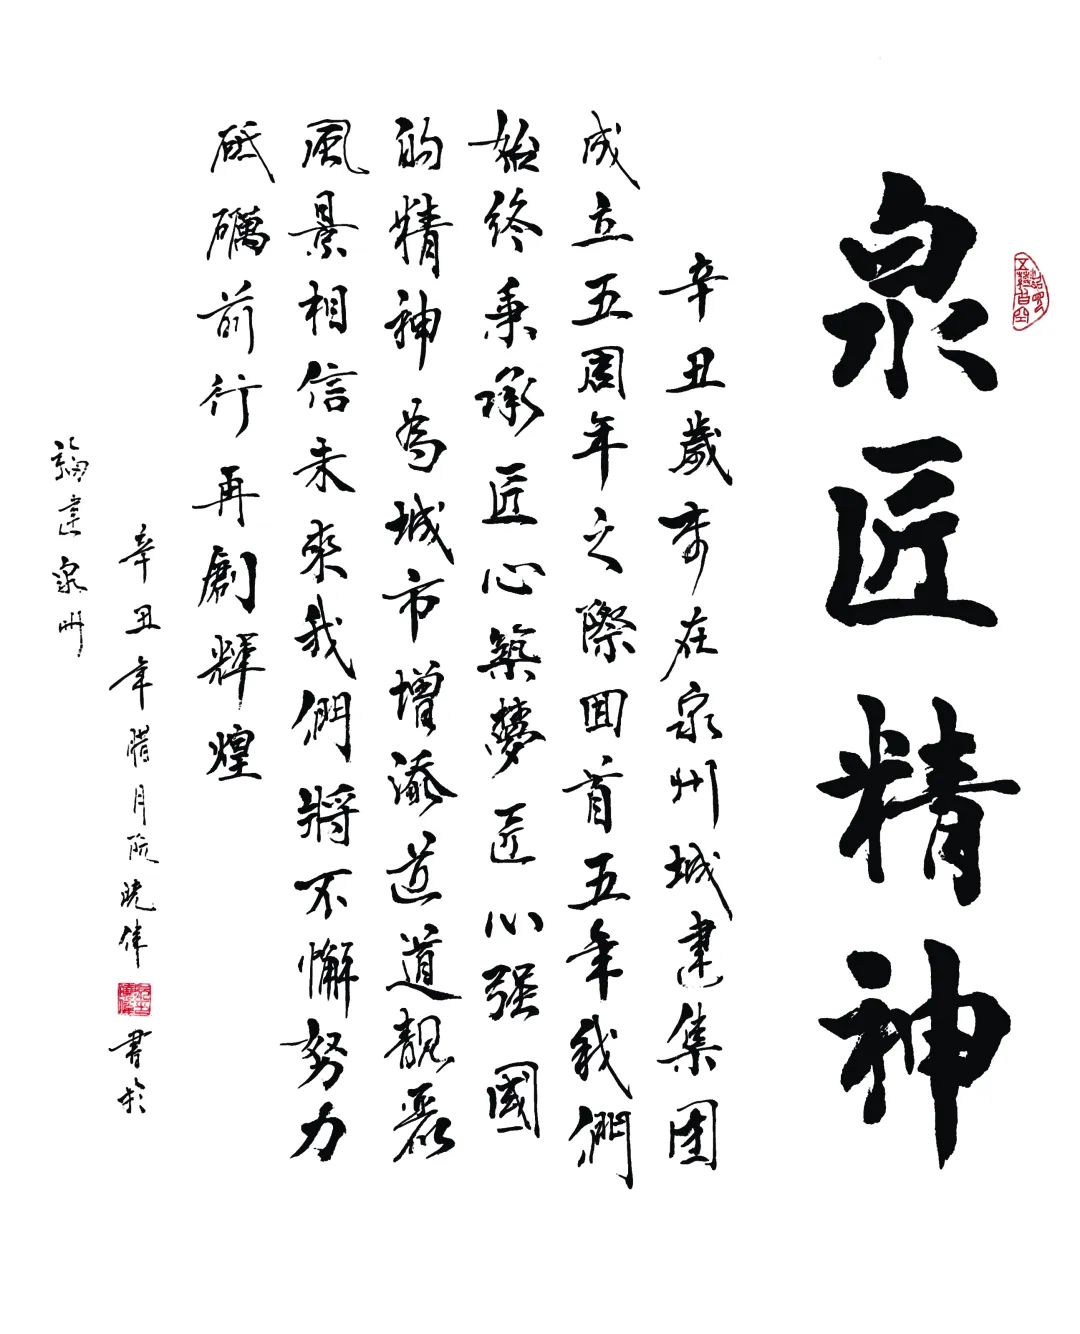 泉匠精神
辛丑歲在泉州城建集团
成立五周年之際回首五年我們
始终秉承匠心築夢匠心强國
的精神為城市增添道道靚麗
風景相信未來我們將不懈努力
砥礪前行再創輝煌
辛丑年臘月阮曉偉書於
福建泉州